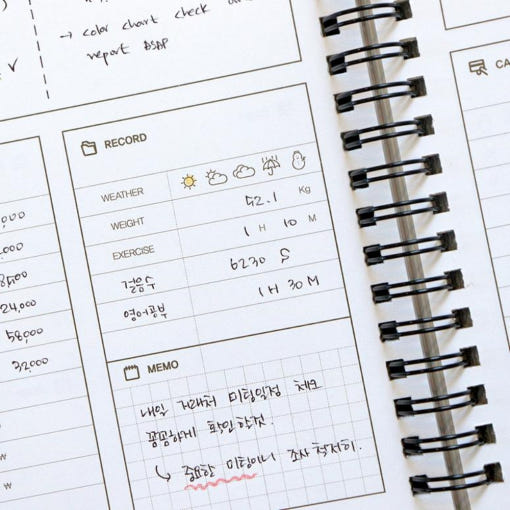 → color chart check
report ASAP
RECORD
WEATHER
WEIGHT 52.1 Kg
EXERCISE 1 H 10 M
걸음수 6230 보
영어공부 1H 30M
MEMO
내일 거래처 미팅일정 체크
꼼꼼하게 확인할것.
↳ 중요한 미팅이니 조사 철저히.
,000
,000
24,000
58,000
32,000
W
W
CA